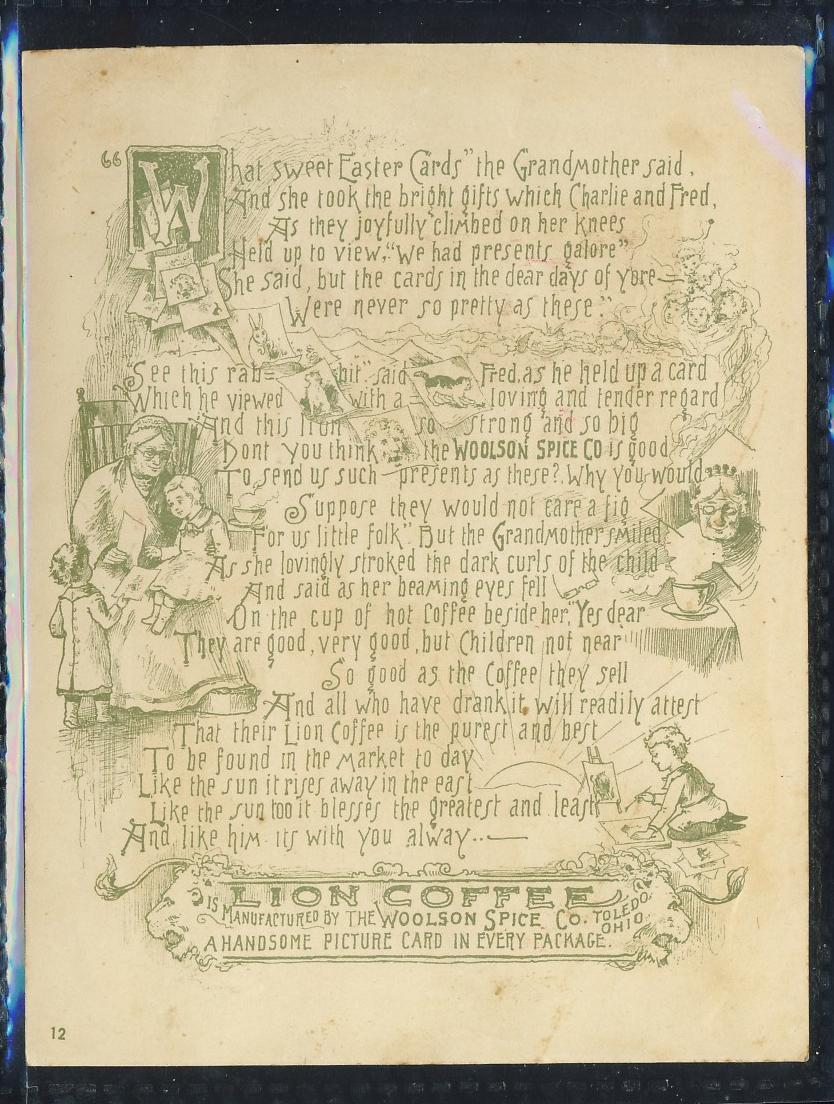 “What sweet Easter Cards” the Grandmother said,
And she took the bright gifts which Charlie and Fred,
As they joyfully climbed on her knees
Held up to view, “We had presents galore”
She said, but the cards in the dear days of yore—
Were never so pretty as these.”
See this rab= bit” said Fred, as he held up a card
Which he viewed with a loving and tender regard
“And this lion so strong and so big
Dont you think the WOOLSON SPICE CO is good
To send us such presents as these?. Why you would
Suppose they would not care a fig
For us little folk” But the Grandmother smiled
As she lovingly stroked the dark curls of the child
And said as her beaming eyes fell
On the cup of hot Coffee beside her, “Yes dear
They are good, very good, but Children not near
So good as the Coffee they sell
And all who have drank it will readily attest
That their Lion Coffee is the purest and best
To be found in the market to day
Like the sun it rises away in the east
Like the sun too it blesses the greatest and least
And like him its with you alway..—
LION COFFEE
IS MANUFACTURED BY THE WOOLSON SPICE CO. TOLEDO, OHIO
A HANDSOME PICTURE CARD IN EVERY PACKAGE.
12